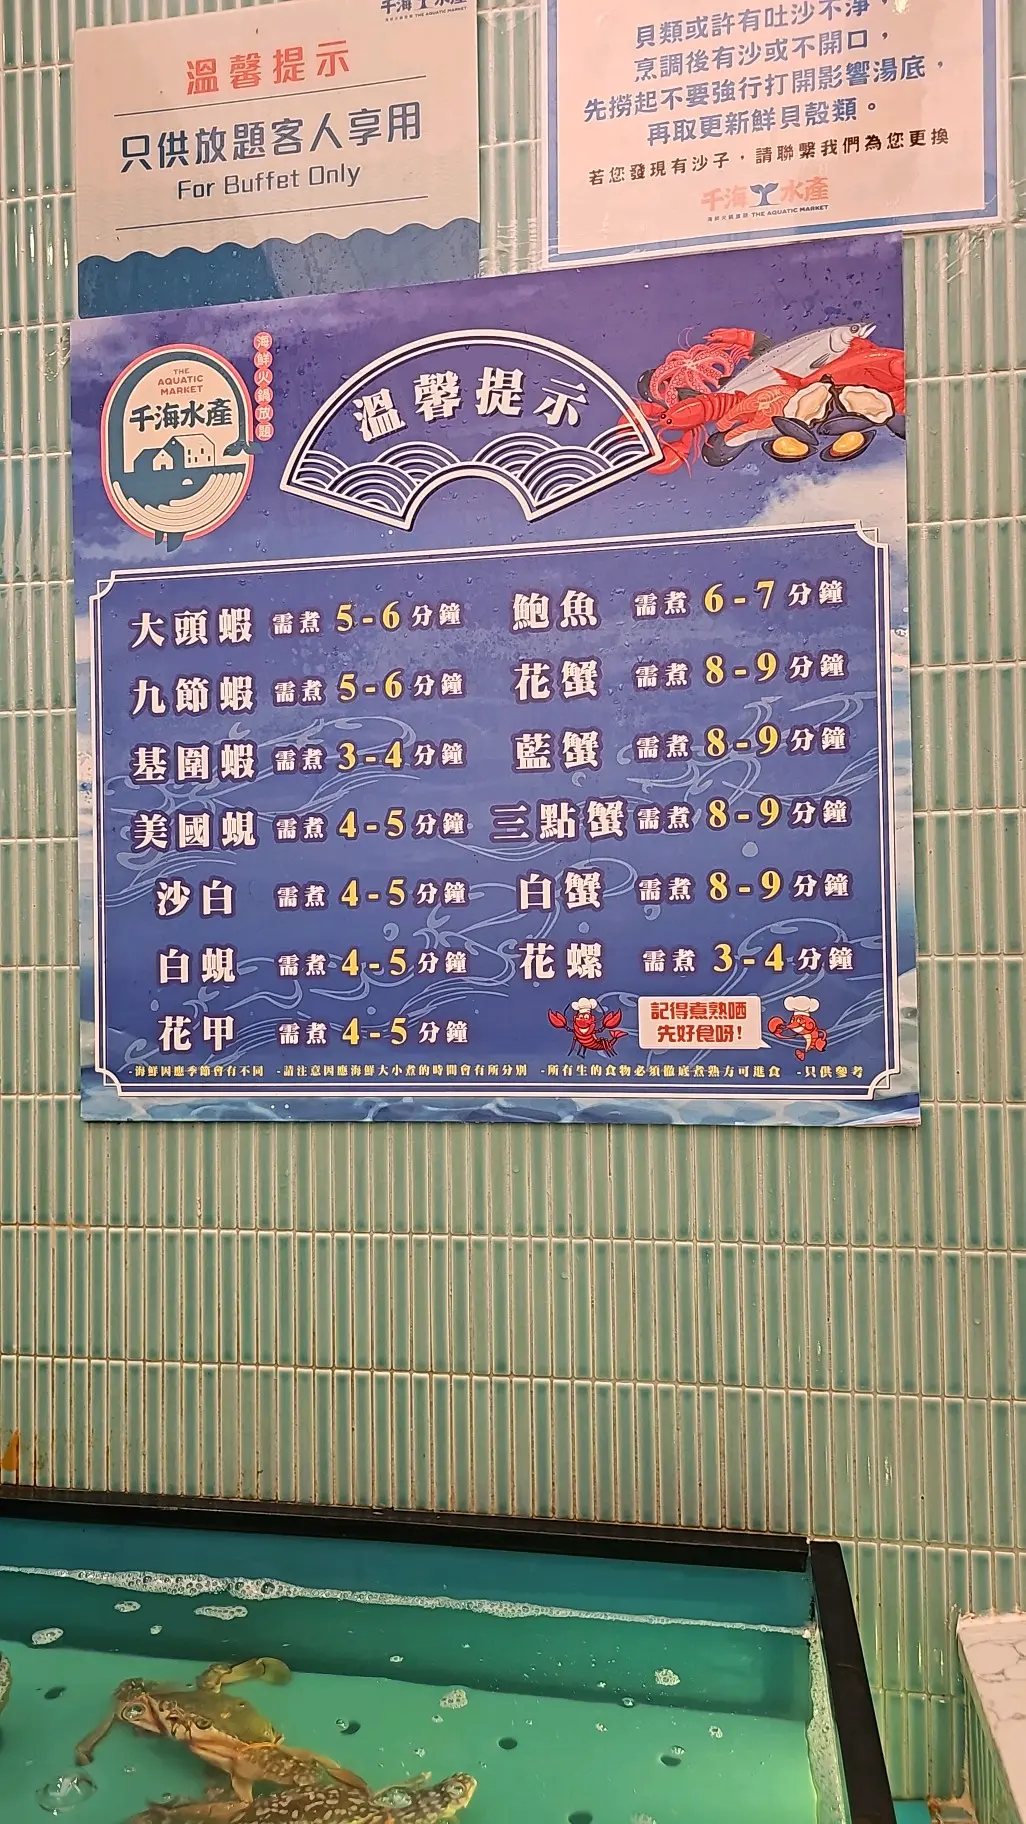 千海水產
THE AQUATIC MARKET
溫馨提示
只供放題客人享用
For Buffet Only
貝類或許有吐沙不淨，
烹調後有沙或不開口，
先撈起不要強行打開影響湯底，
再取更新鮮貝殼類。
若您發現有沙子，請聯繫我們為您更換
千海水產
海鮮火鍋放題 THE AQUATIC MARKET
THE
AQUATIC
MARKET
千海水產
海鮮火鍋放題
溫馨提示
大頭蝦 需煮 5-6 分鐘
鮑魚 需煮 6-7 分鐘
九節蝦 需煮 5-6 分鐘
花蟹 需煮 8-9 分鐘
基圍蝦 需煮 3-4 分鐘
藍蟹 需煮 8-9 分鐘
美國蜆 需煮 4-5 分鐘
三點蟹 需煮 8-9 分鐘
沙白 需煮 4-5 分鐘
白蟹 需煮 8-9 分鐘
白蜆 需煮 4-5 分鐘
花螺 需煮 3-4 分鐘
花甲 需煮 4-5 分鐘
記得煮熟晒
先好食呀!
-海鮮因應季節會有不同 -請注意因應海鮮大小煮的時間會有所分別 -所有生的食物必須徹底煮熟方可進食 -只供參考